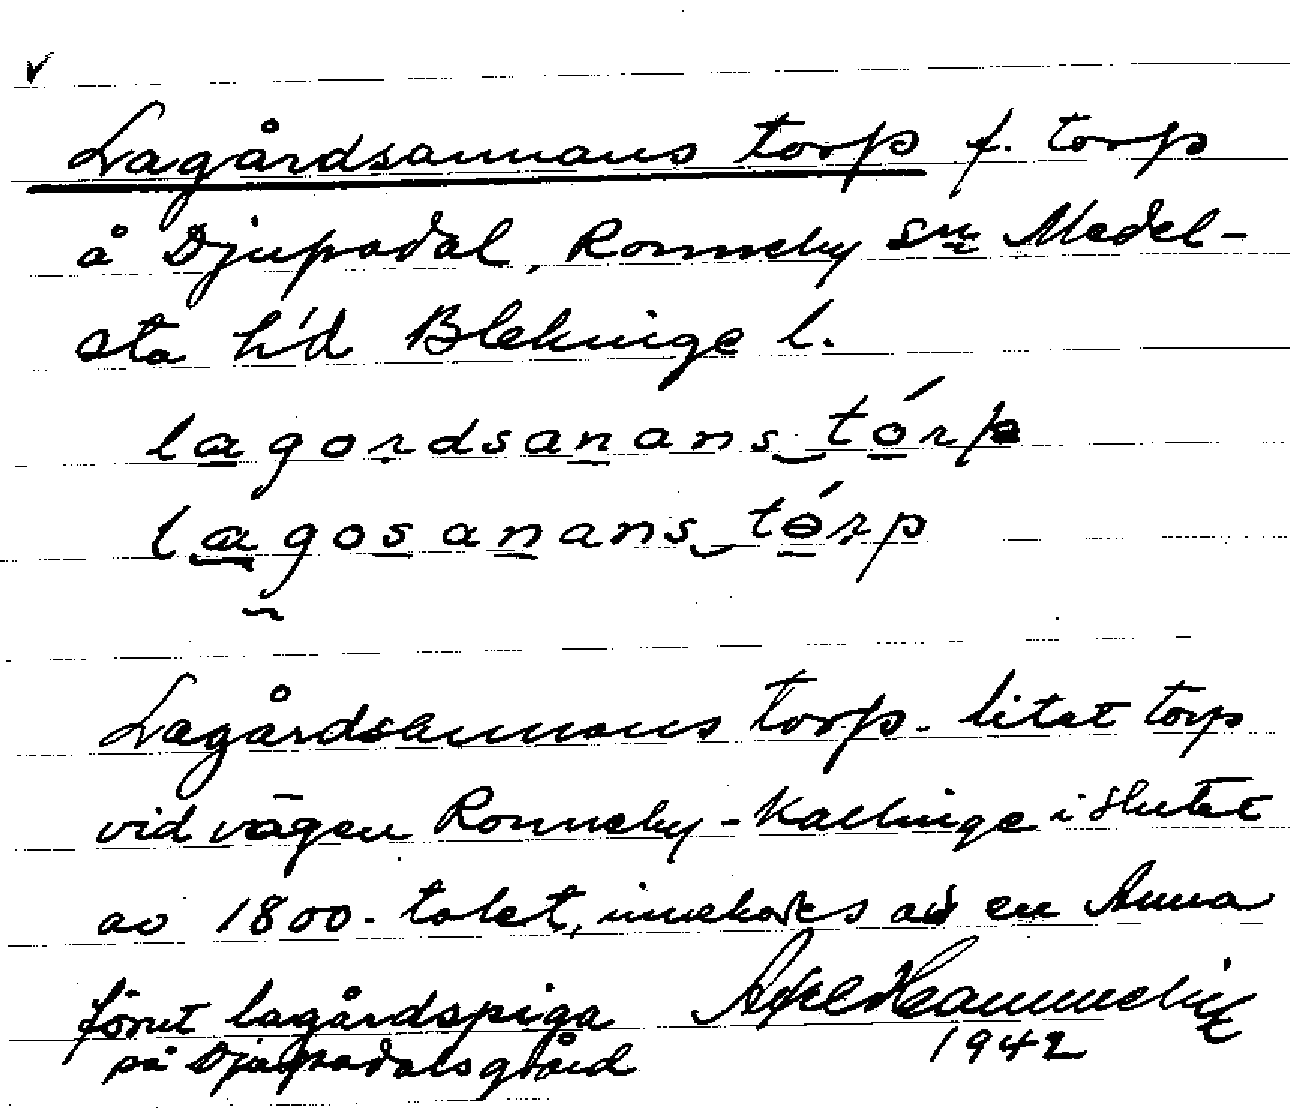 Lagårdsannans torp f. torp
å Djupadal, Ronneby sn Medel-
sta h'd Blekinge l.
lagordsanans tórp
lagosanans tórp
Lagårdsannans torp - litet torp
vid vägen Ronneby - Kallinge i slutet
av 1800-talet, innehades av en Anna
förut lagårdspiga Axel
1942
på Djupadalsgård